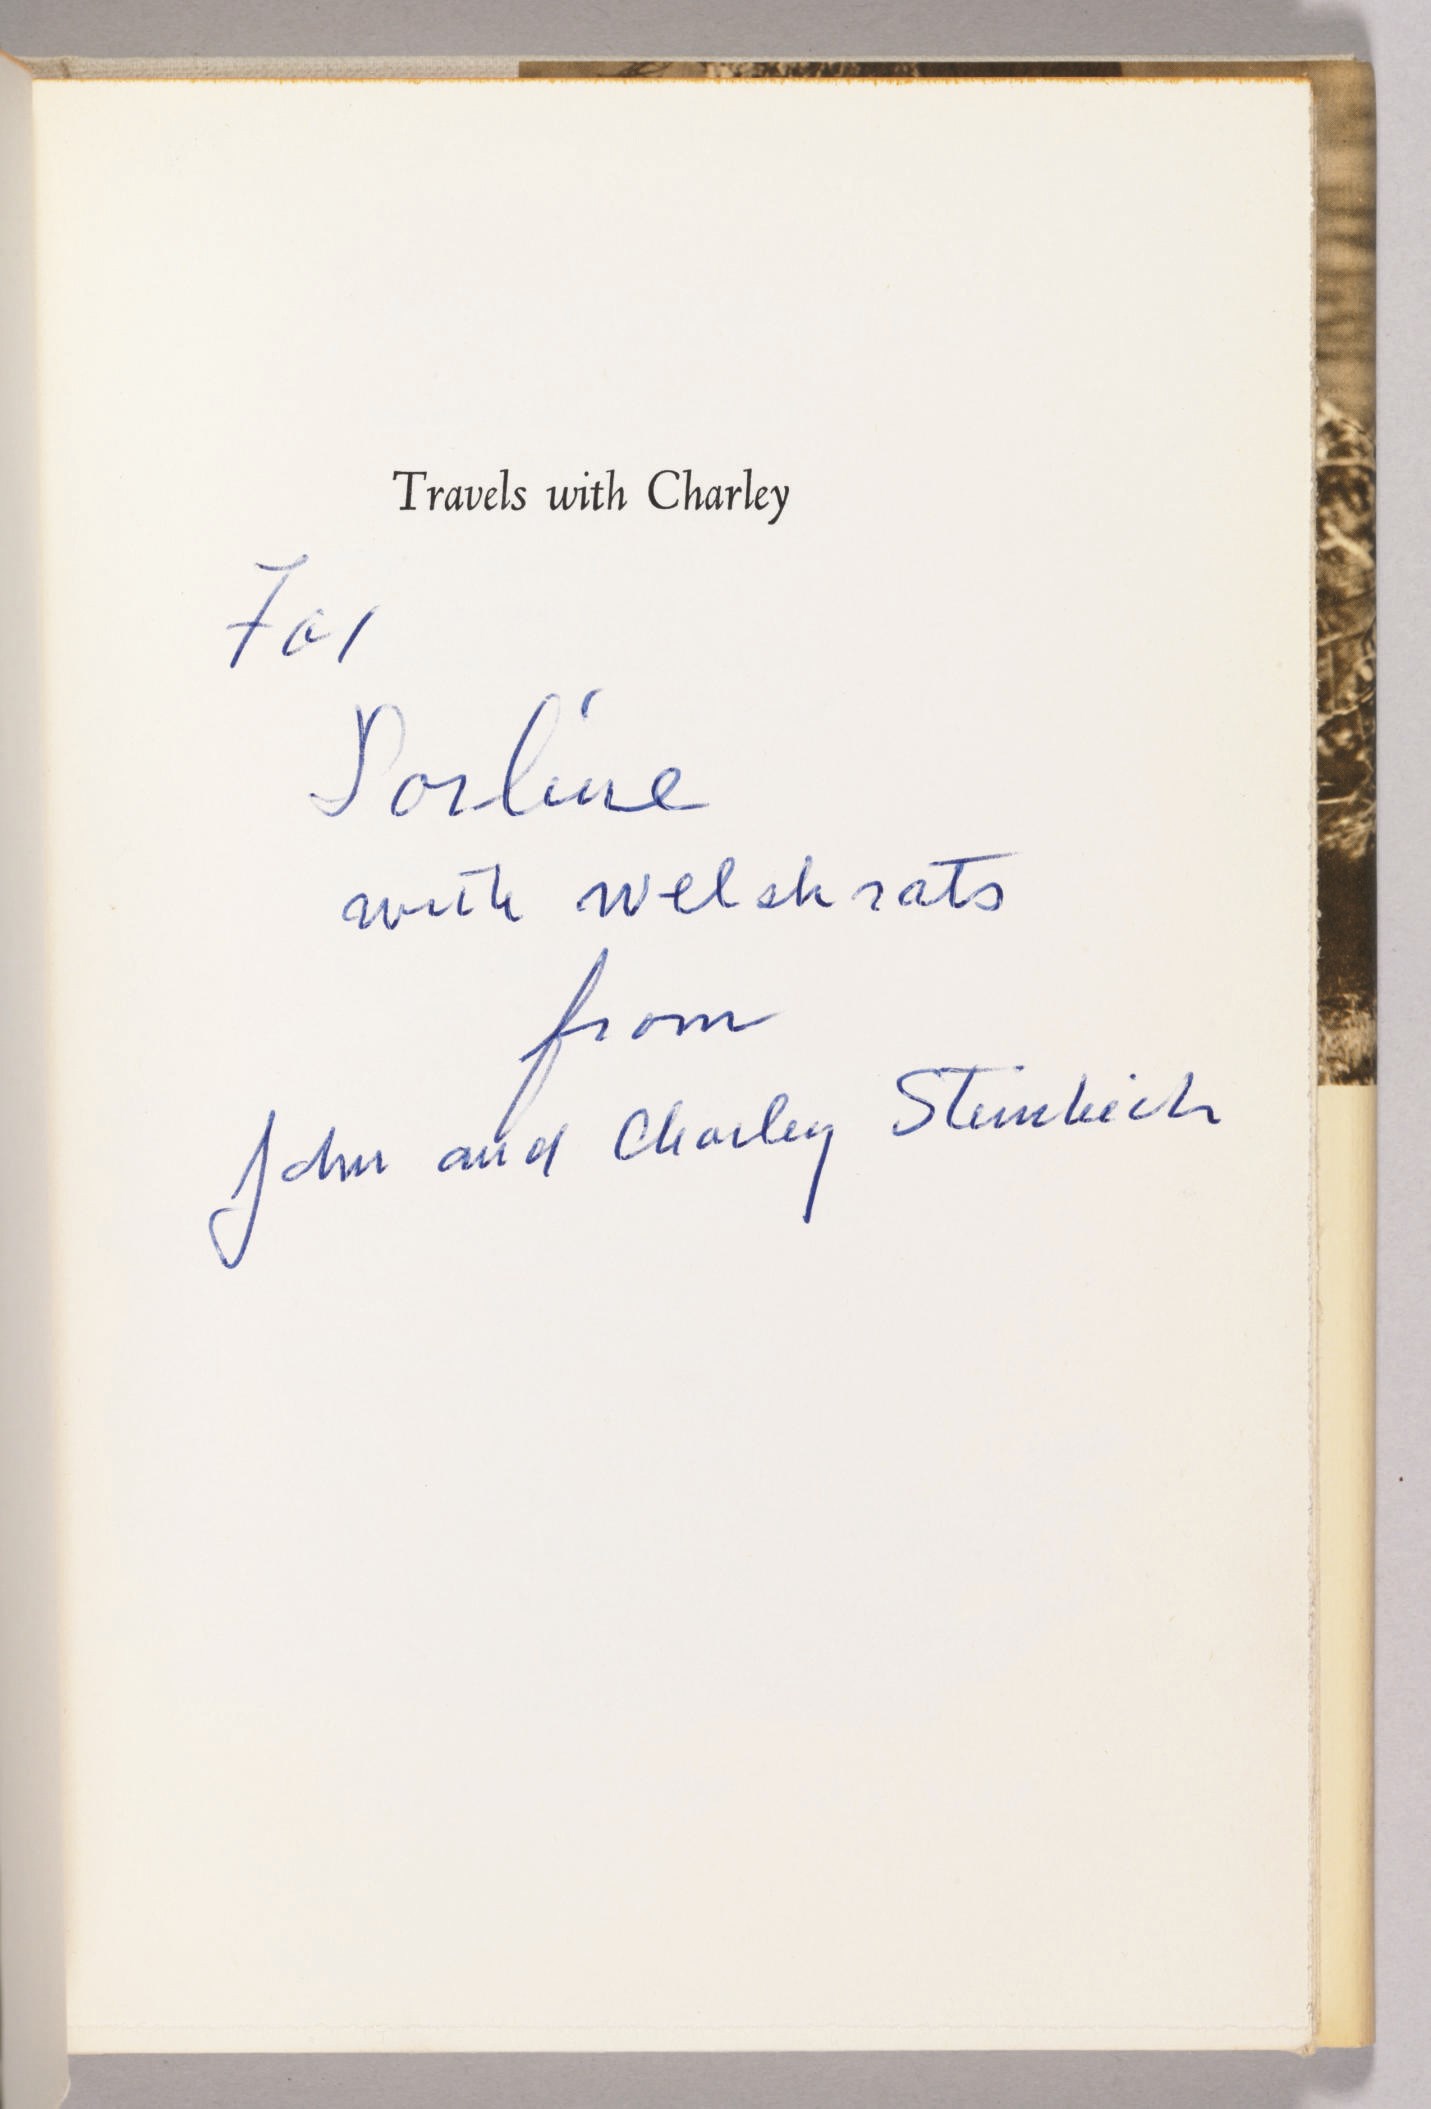 Travels with Charley
For
Dorline
with welshrats
from
John and Charley Steinbeck